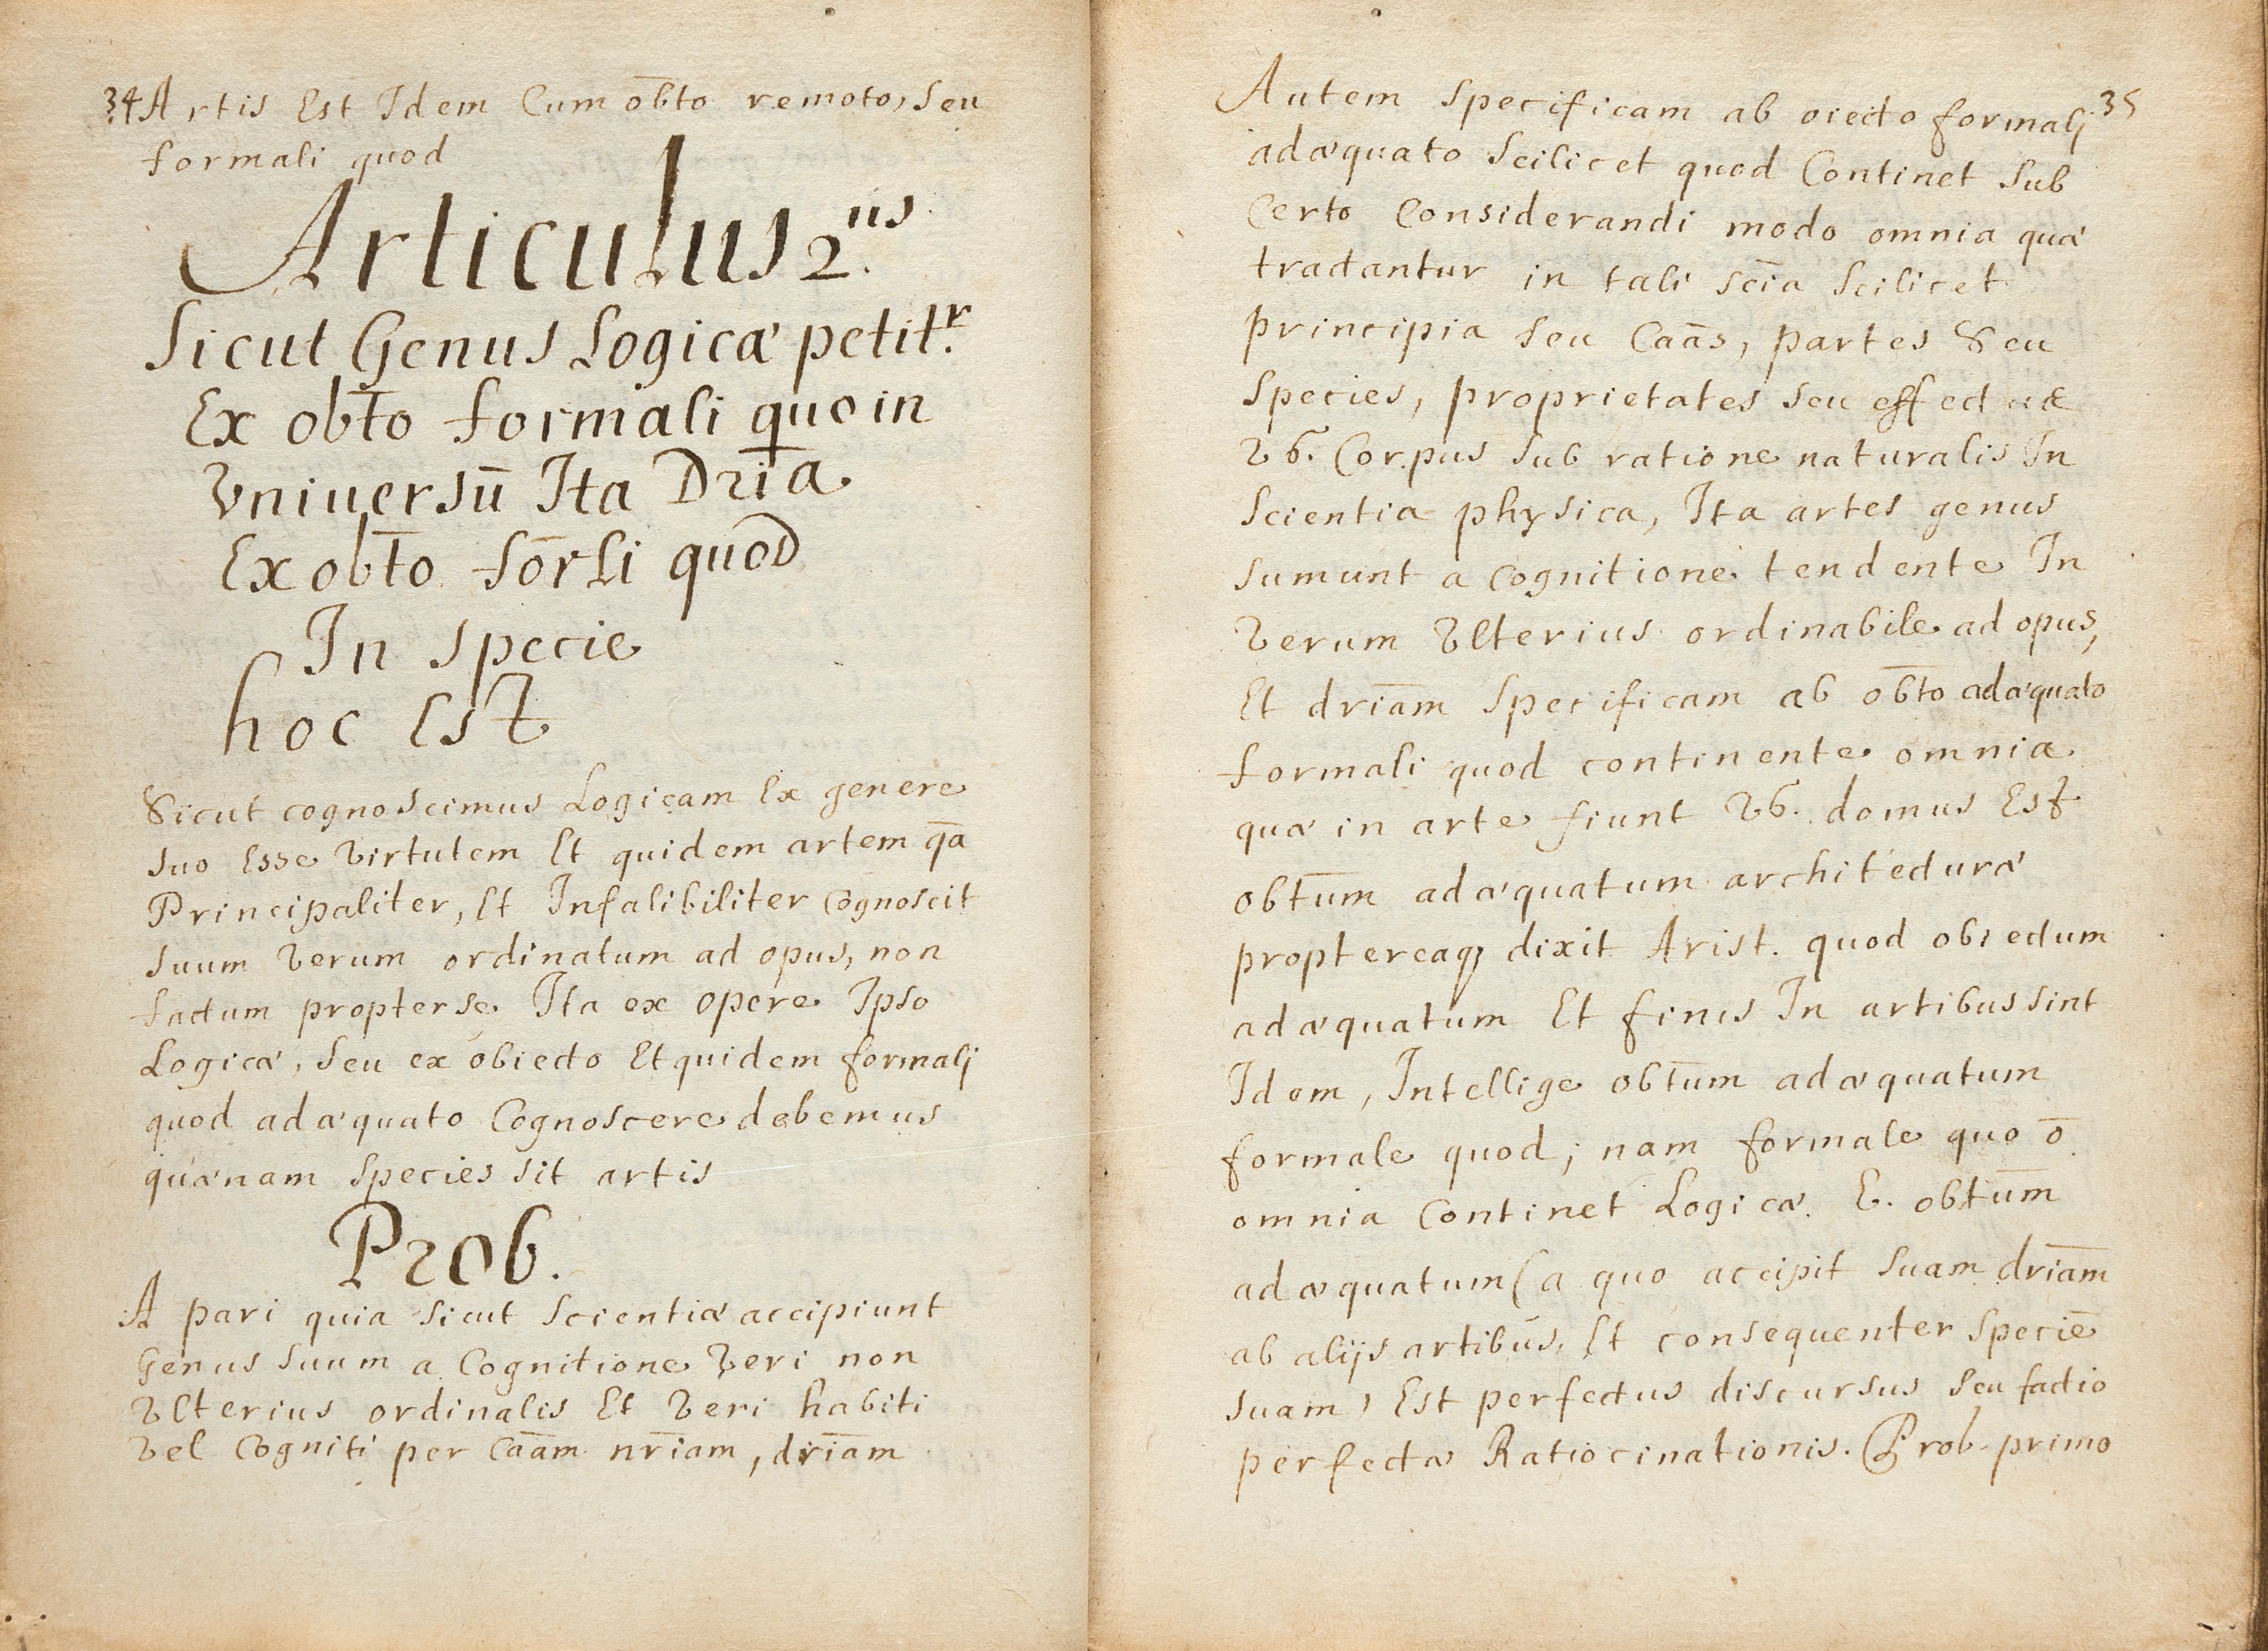 34 Artis Est Idem Cum ob̄to remoto, seu
formali quod
Articulus 2.us
Sicut Genus Logicæ petit.r
Ex ob̄to formali quo in
Vniuersū Ita Dr̄ia
Ex ob̄to for̄li quod
In specie
hoc Est
Sicut cognoscimus Logicam Ex genere
suo Esse Virtutem Et quidem artem q̄a
Principaliter, Et Infalibiliter Cognoscit
suum Verum ordinatum ad opus, non
factum propter se Ita ex opere Ipso
Logicæ, seu ex obiecto Et quidem formalj
quod adæquato Cognoscere debemus
quænam species sit artis
Prob.
A pari quia sicut scientiæ accipiunt
Genus suum a Cognitione Veri non
Vlterius ordinalis Et Veri habiti
Vel Cogniti per Cāam nr̄iam, dr̄iam
Autem specificam ab oiecto formalj 35
adæquato scilicet quod Continet sub
Certo Considerandi modo omnia quæ
tradantur in tali scīa scilicet
principia seu Caās, partes seu
species, proprietates seu effectus
Vb. Corpus sub ratione naturalis In
scientia physica, Ita artes genus
sumunt a Cognitione tendente In
Verum Vlterius ordinabile ad opus,
Et dr̄iam specificam ab ob̄to adæquato
formali quod continente omnia
quæ in arte fiunt Vb. domus Est
obt̄um adæquatum architecturæ
proptereaq; dixit Arist. quod obiectum
adæquatum Et finis In artibus sint
Idem, Intellige obt̄um adæquatum
formale quod; nam formale quo ō
omnia Continet Logicæ. E. obt̄um
adæquatum (a quo accipit suam dr̄iam
ab alijs artibus, Et consequenter speciē
suam) Est perfectus discursus seu factio
perfectæ Ratiocinationis. Prob. primo